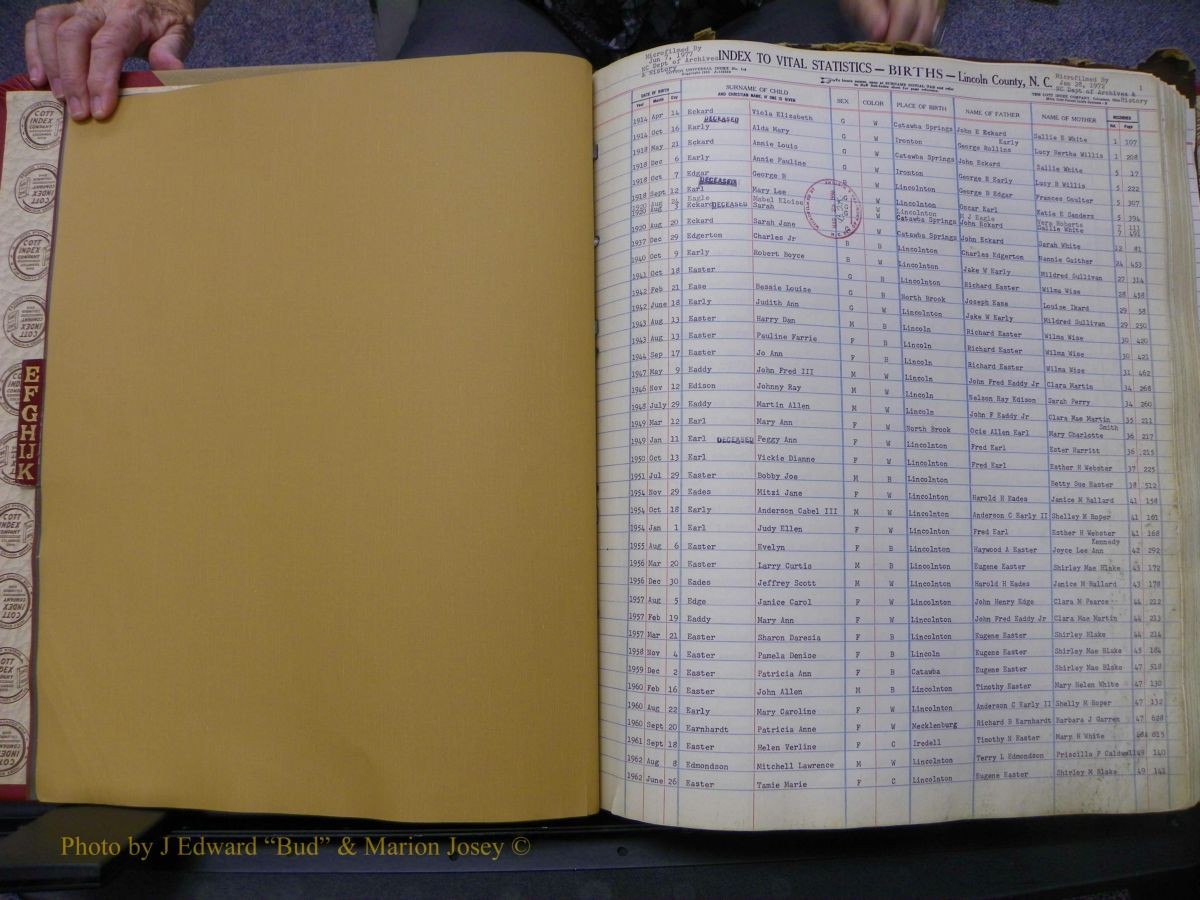 COTT INDEX COMPANY
EFGHIJK
Microfilmed By
Jun 7, 1977
NC Dept of Archives & History
INDEX TO VITAL STATISTICS — BIRTHS — Lincoln County, N. C.
Microfilmed By
Jan 28, 1972
NC Dept of Archives & History
1
DATE OF BIRTH Year Month Day SURNAME OF CHILD AND CHRISTIAN NAME, IF ONE IS GIVEN SEX COLOR PLACE OF BIRTH NAME OF FATHER NAME OF MOTHER RECORDED Vol. Page
1914 Apr 14 Eckard Viola Elizabeth G W Catawba Springs John E Eckard Sallie E White 1 107
DECEASED
1914 Oct 16 Early Alda Mary G W Ironton George Rollins Early Lucy Bertha Willis 1 208
1918 May 21 Eckard Annie Louis G W Catawba Springs John Eckard Sallie White 5 17
1918 Dec 6 Early Annie Pauline G W Ironton George R Early Lucy B Willis 5 222
1918 Oct 7 Edgar George B B W Lincolnton George B Edgar Frances Coulter 5 307
DECEASED
1918 Sept 12 Earl Mary Lee G W Lincolnton Oscar Earl Katie E Sanders 5 394
1920 Aug 24 Eagle Mabel Eloise G W Lincolnton M J Eagle Vera Roberts 7 111
1920 Aug 3 Eckard DECEASED Sarah G W Catawba Springs John Eckard Sallie White
1920 Aug 20 Eckard Sarah Jane W Catawba Springs John Eckard Sarah White 12 81
1937 Dec 29 Edgerton Charles Jr B B Lincolnton Charles Edgerton Nannie Gaither 24 453
1940 Oct 9 Early Robert Boyce B W Lincolnton Jake W Early Mildred Sullivan 27 314
1941 Oct 18 Easter G B Lincolnton Richard Easter Wilma Wise 28 458
1942 Feb 21 Ease Bessie Louise G B North Brook Joseph Ease Louise Ikard 29 58
1942 June 18 Early Judith Ann G W Lincolnton Jake W Early Mildred Sullivan 29 250
1943 Aug 13 Easter Harry Dan M B Lincoln Richard Easter Wilma Wise 30 420
1943 Aug 13 Easter Pauline Farrie F B Lincoln Richard Easter Wilma Wise 30 421
1944 Sep 17 Easter Jo Ann F B Lincoln Richard Easter Wilma Wise 31 462
1947 May 9 Eaddy John Fred III M W Lincoln John Fred Eaddy Jr Clara Martin 34 268
1946 Nov 12 Edison Johnny Ray M W Lincoln Nelson Ray Edison Sarah Perry 34 260
1948 July 29 Eaddy Martin Allen M W Lincoln John F Eaddy Jr Clara Mae Martin 35 211
1949 Mar 12 Earl Mary Ann F W North Brook Ocie Allen Earl Mary Charlotte Smith 36 217
1949 Jan 11 Earl DECEASED Peggy Ann F W Lincolnton Fred Earl Ester Harritt 36 215
1950 Oct 13 Earl Vickie Dianne F W Lincolnton Fred Earl Esther H Webster 37 225
1951 Jul 29 Easter Bobby Joe M B Lincolnton Betty Sue Easter 38 512
1954 Nov 29 Eades Mitzi Jane F W Lincolnton Harold H Eades Janice M Ballard 41 158
1954 Oct 18 Early Anderson Cabel III M W Lincolnton Anderson C Early II Shelley M Roper 41 161
1954 Jan 1 Earl Judy Ellen F W Lincolnton Fred Earl Esther H Webster 41 168
1955 Aug 6 Easter Evelyn F B Lincolnton Haywood A Easter Joyce Lee Ann Kennedy 42 292
1956 Mar 20 Easter Larry Curtis M B Lincolnton Eugene Easter Shirley Mae Blake 43 172
1956 Dec 30 Eades Jeffrey Scott M W Lincolnton Harold H Eades Janice M Ballard 43 178
1957 Aug 5 Edge Janice Carol F W Lincolnton John Henry Edge Clara M Pearce 44 212
1957 Feb 19 Eaddy Mary Ann F W Lincolnton John Fred Eaddy Jr Clara Mae Martin 44 213
1957 Mar 21 Easter Sharon Daresia F B Lincolnton Eugene Easter Shirley Blake 44 214
1958 Nov 4 Easter Pamela Denise F B Lincoln Eugene Easter Shirley Mae Blake 45 164
1959 Dec 2 Easter Patricia Ann F B Catawba Eugene Easter Shirley Mae Blake 47 518
1960 Feb 16 Easter John Allen M B Lincolnton Timothy Easter Mary Helen White 47 130
1960 Aug 22 Early Mary Caroline F W Lincolnton Anderson C Early II Shelly M Roper 47 132
1960 Sept 20 Earnhardt Patricia Anne F W Mecklenburg Richard B Earnhardt Barbara J Garren 47 628
1961 Sept 18 Easter Helen Verline F C Iredell Timothy N Easter Mary H White 615
1962 Aug 8 Edmondson Mitchell Lawrence M W Lincolnton Terry L Edmondson Priscilla F Caldwell 49 140
1962 June 26 Easter Tamie Marie F C Lincolnton Eugene Easter Shirley M Blake 49 141
Photo by J Edward “Bud” & Marion Josey ©